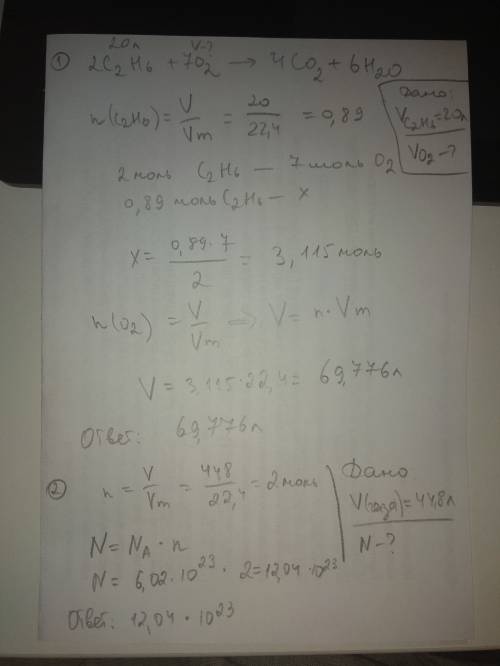 20л V-?
① 2C2H6 + 7O2 → 4CO2 + 6H2O
Дано:
V C2H6 = 20л
VO2 - ?
n(C2H6) = V/Vm = 20/22,4 = 0,89
2 моль C2H6 — 7 моль O2
0,89 моль C2H6 — x
x = 0,89·7/2 = 3,115 моль
n(O2) = V/Vm => V = n·Vm
V = 3,115·22,4 = 69,776л
Ответ: 69,776л
② n = V/Vm = 448/22,4 = 2 моль
Дано
V(газа) = 44,8л
N - ?
N = NA · n
N = 6,02·10²³ · 2 = 12,04·10²³
Ответ: 12,04·10²³